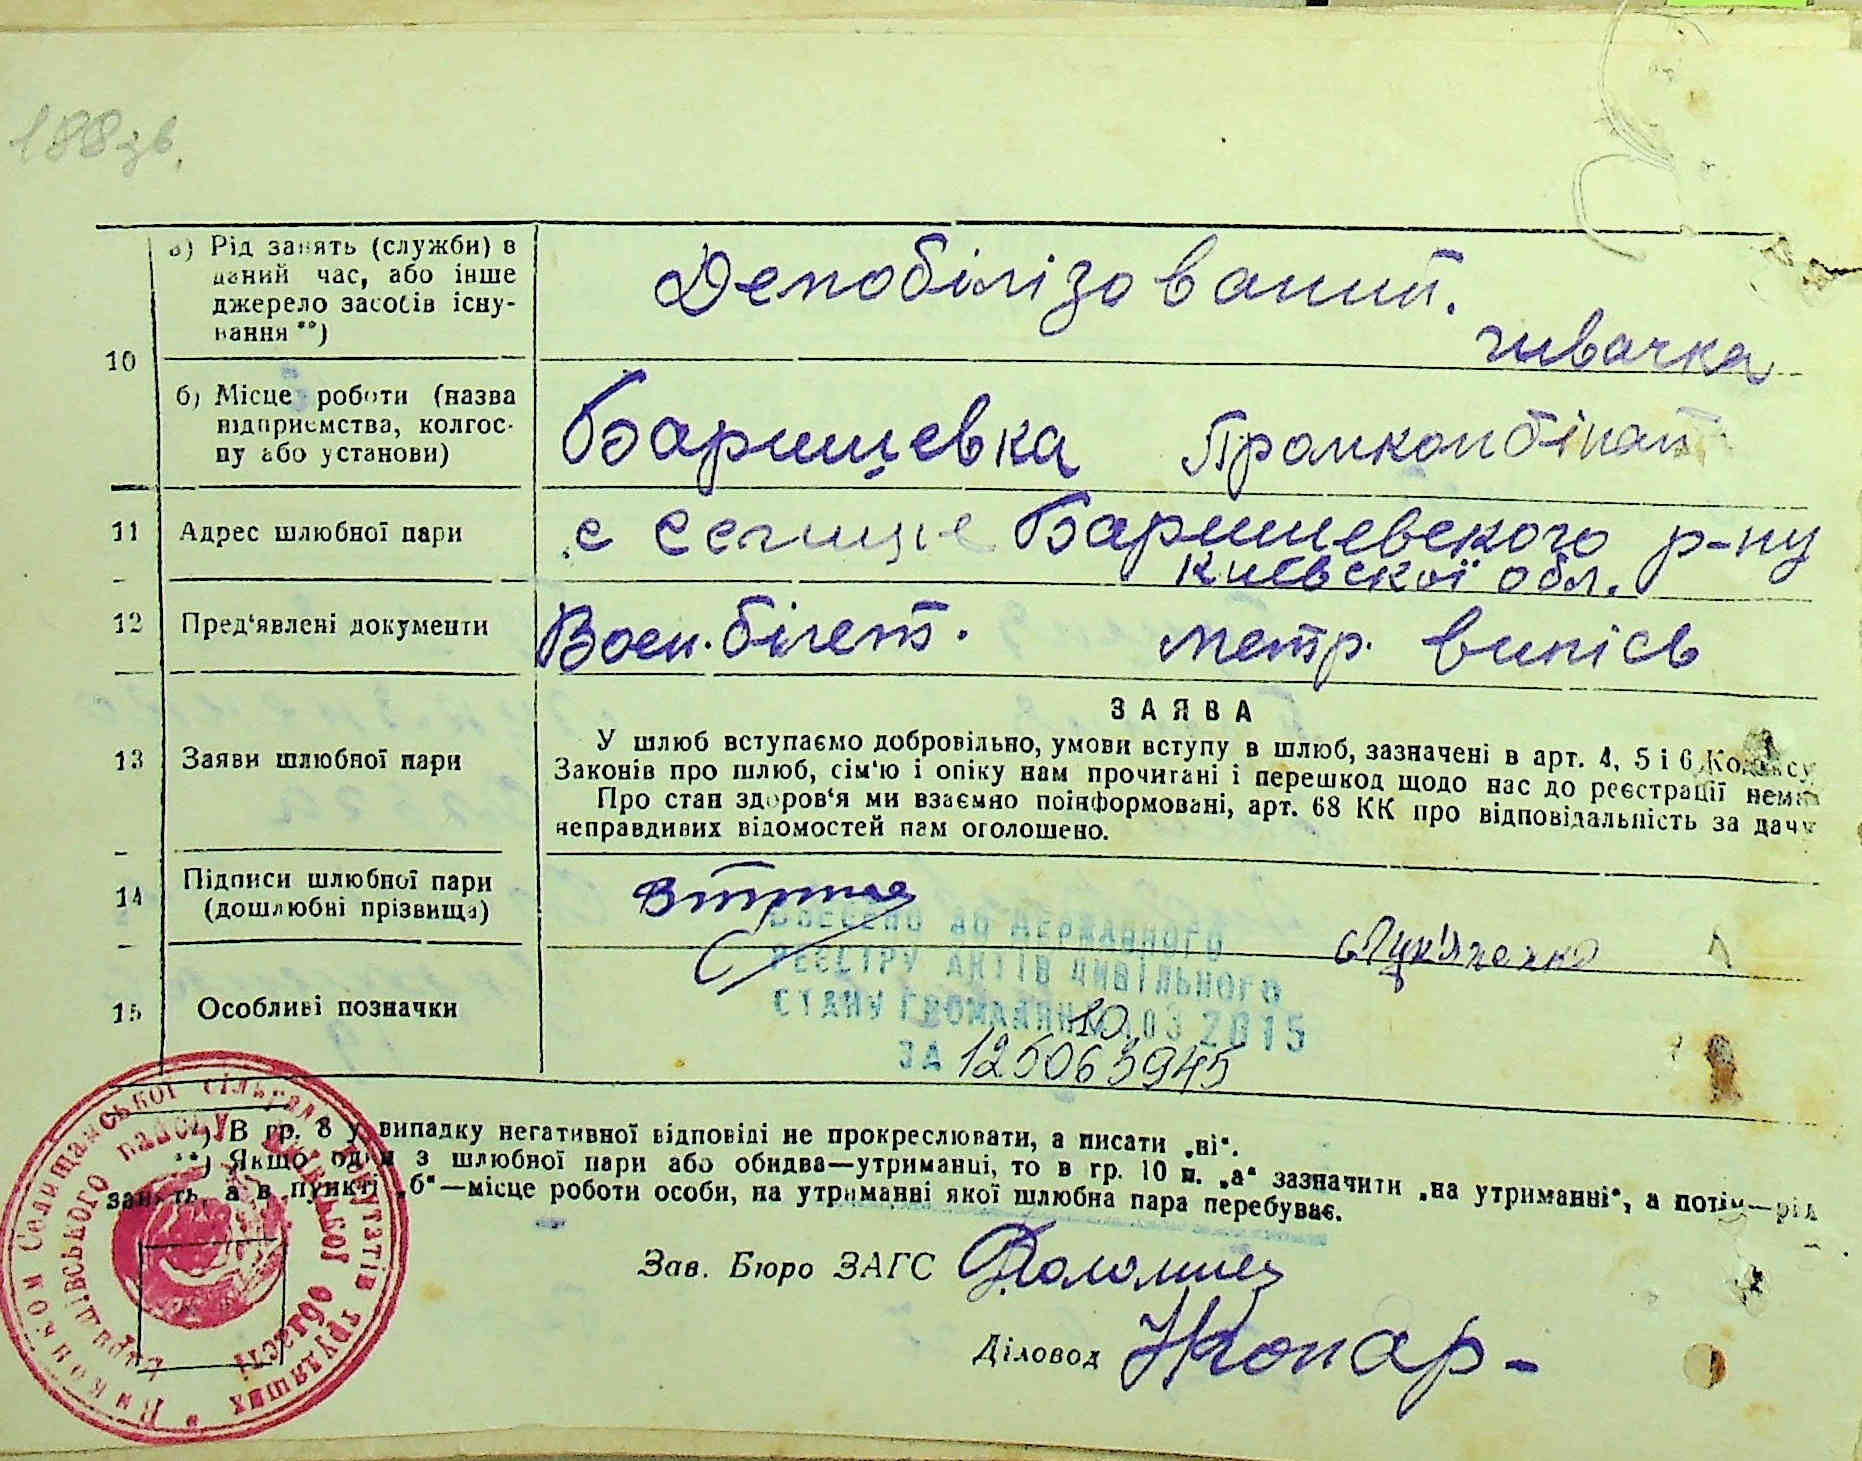 188зв.
а) Рід занять (служби) в
даний час, або інше
джерело засобів існу-
вання **)
Демобілізований.
швачка
10
б) Місце роботи (назва
підприємства, колгос-
пу або установи)
Баришевка Промкомбінат
11 Адрес шлюбної пари
с Селище Баришевского р-ну
Київскої обл.
12 Пред'явлені документи
Воен. білет. метр. випісь
13 Заяви шлюбної пари
ЗАЯВА
У шлюб вступаємо добровільно, умови вступу в шлюб, зазначені в арт. 4, 5 і 6 Кодексу
Законів про шлюб, сім'ю і опіку нам прочитані і перешкод щодо нас до реєстрації нема
Про стан здоров'я ми взаємно поінформовані, арт. 68 КК про відповідальність за дачу
неправдивих відомостей нам оголошено.
14 Підписи шлюбної пари
(дошлюбні прізвища)
Лук'яненко
15 Особливі позначки
ВНЕСЕНО ДО ДЕРЖАВНОГО
РЕЄСТРУ АКТІВ ЦИВІЛЬНОГО
СТАНУ ГРОМАДЯН 10 03 2015
ЗА 125063945
*) В гр. 8 у випадку негативної відповіді не прокреслювати, а писати „ні“.
**) Якщо один з шлюбної пари або обидва—утриманці, то в гр. 10 п. „а“ зазначити „на утриманні“, а потім—рід
занять, а в пункті „б“—місце роботи особи, на утриманні якої шлюбна пара перебуває.
Зав. Бюро ЗАГС Коломиец
Діловод
Виконком Селищанської сільради депутатів трудящих
Баришівського району Київської області